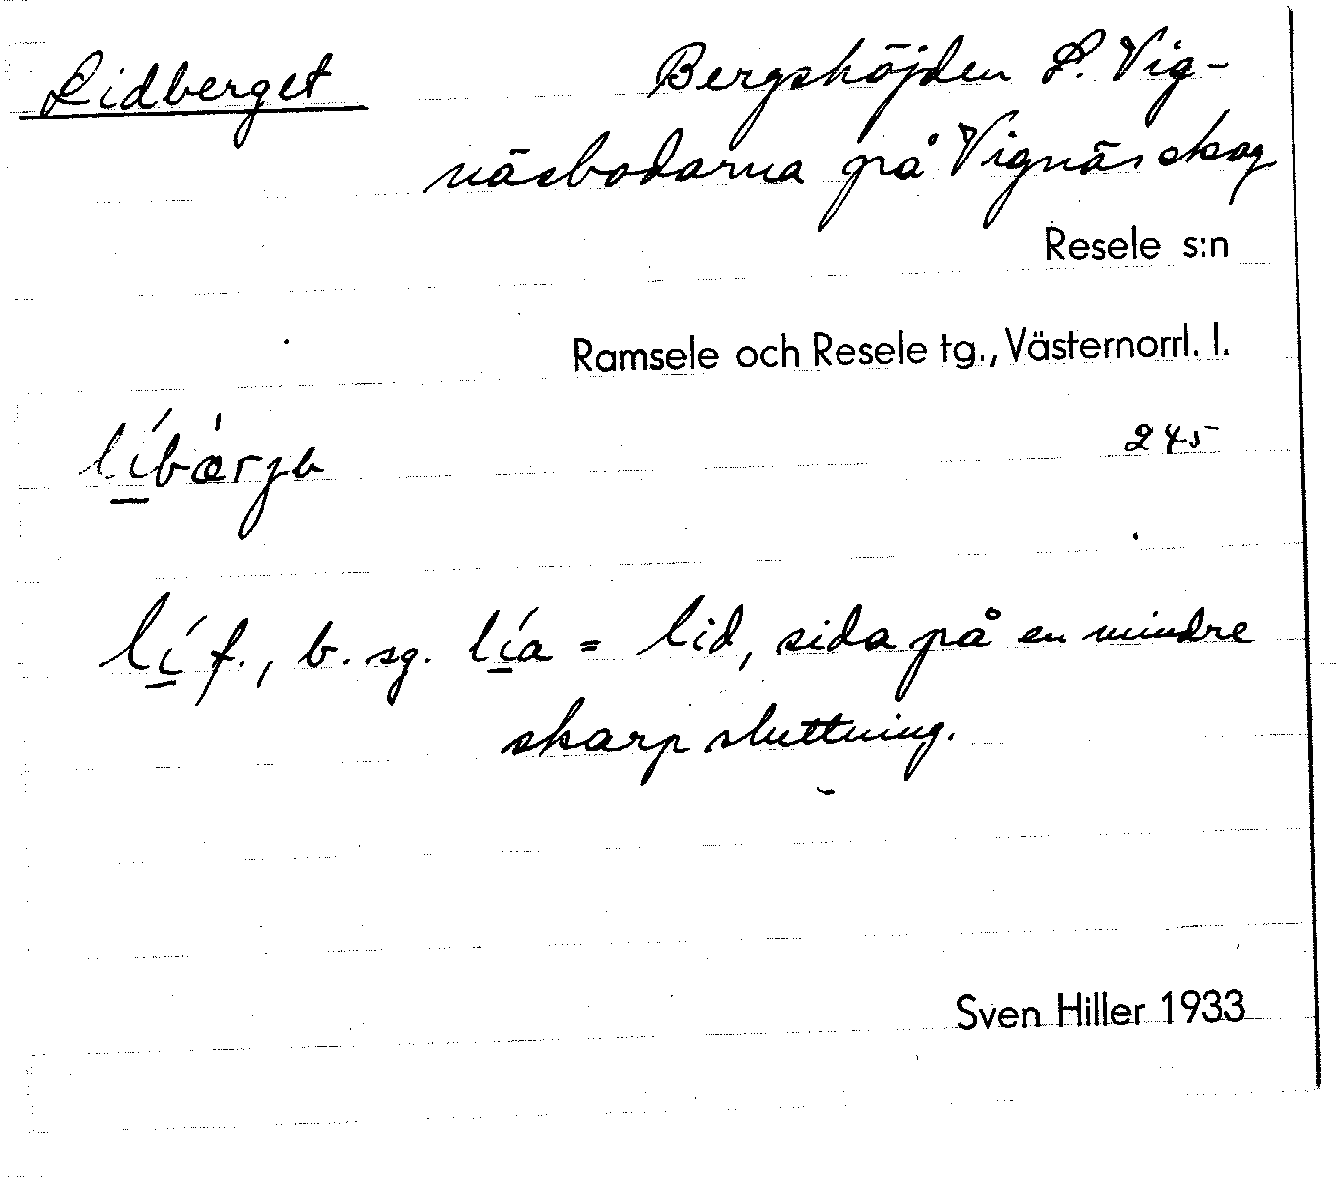 Lidberget
Bergshöjden S. Vig-
näsbodarna på Vignäs skog
Resele s:n
Ramsele och Resele tg., Västernorrl. l.
245
lí f., b. sg. lía = lid, sida på en mindre
skarp sluttning.
Sven Hiller 1933